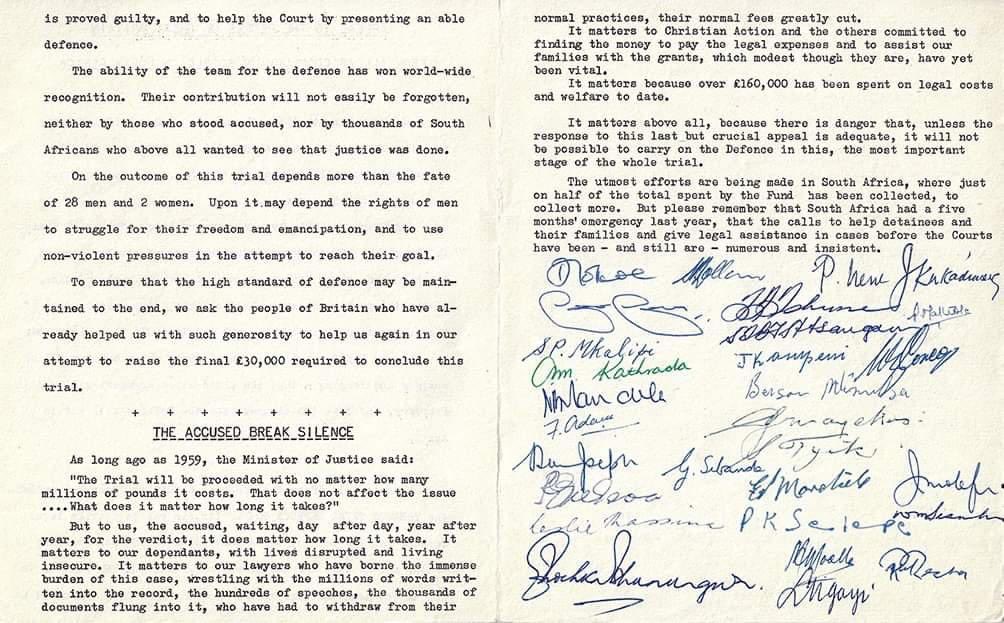 is proved guilty, and to help the Court by presenting an able
defence.
The ability of the team for the defence has won world-wide
recognition. Their contribution will not easily be forgotten,
neither by those who stood accused, nor by thousands of South
Africans who above all wanted to see that justice was done.
On the outcome of this trial depends more than the fate
of 28 men and 2 women. Upon it may depend the rights of men
to struggle for their freedom and emancipation, and to use
non-violent pressures in the attempt to reach their goal.
To ensure that the high standard of defence may be main-
tained to the end, we ask the people of Britain who have al-
ready helped us with such generosity to help us again in our
attempt to raise the final £30,000 required to conclude this
trial.
+ + + + + + + +
THE ACCUSED BREAK SILENCE
As long ago as 1959, the Minister of Justice said:
"The Trial will be proceeded with no matter how many
millions of pounds it costs. That does not affect the issue
....What does it matter how long it takes?"
But to us, the accused, waiting, day after day, year after
year, for the verdict, it does matter how long it takes. It
matters to our dependants, with lives disrupted and living
insecure. It matters to our lawyers who have borne the immense
burden of this case, wrestling with the millions of words writ-
ten into the record, the hundreds of speeches, the thousands of
documents flung into it, who have had to withdraw from their
normal practices, their normal fees greatly cut.
It matters to Christian Action and the others committed to
finding the money to pay the legal expenses and to assist our
families with the grants, which modest though they are, have yet
been vital.
It matters because over £160,000 has been spent on legal costs
and welfare to date.
It matters above all, because there is danger that, unless the
response to this last but crucial appeal is adequate, it will not
be possible to carry on the Defence in this, the most important
stage of the whole trial.
The utmost efforts are being made in South Africa, where just
on half of the total spent by the Fund has been collected, to
collect more. But please remember that South Africa had a five
months' emergency last year, that the calls to help detainees and
their families and give legal assistance in cases before the Courts
have been - and still are - numerous and insistent.
P. Nene
S.P. Mkalipi
Om. Kathrada
F. Adams
G. Sibande
Leslie Massina